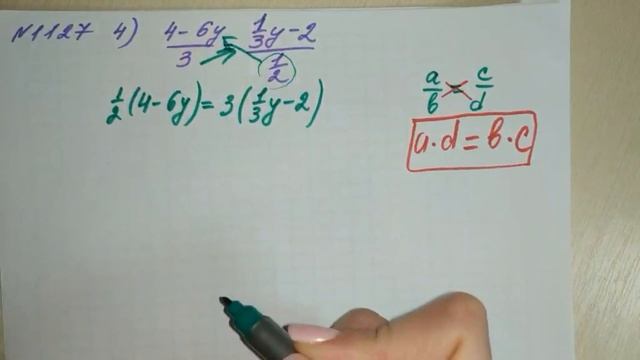 №1127 4) (4-6y)/3 = (1/3y-2)/(1/2)
1/2(4-6y)=3(1/3y-2)
a/b = c/d
a·d=b·c